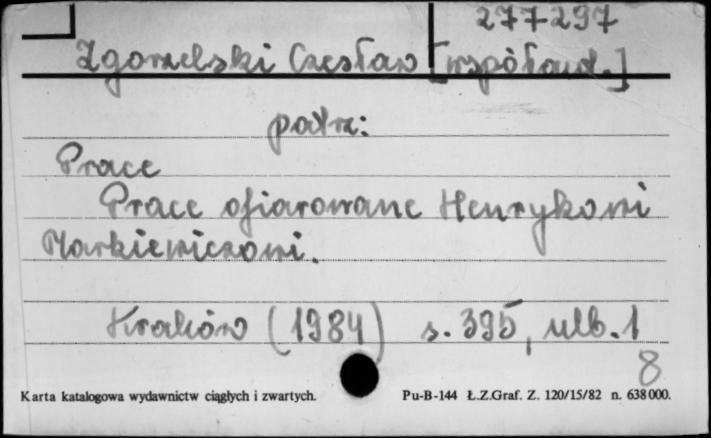 277297
Zgorzelski Czesław [współaut.]
patrz:
Prace
Prace ofiarowane Henrykowi
Markiewiczowi.
Kraków (1984) s. 395, nlb. 1
8
Karta katalogowa wydawnictw ciągłych i zwartych. Pu-B-144 Ł.Z.Graf. Z. 120/15/82 n. 638000.